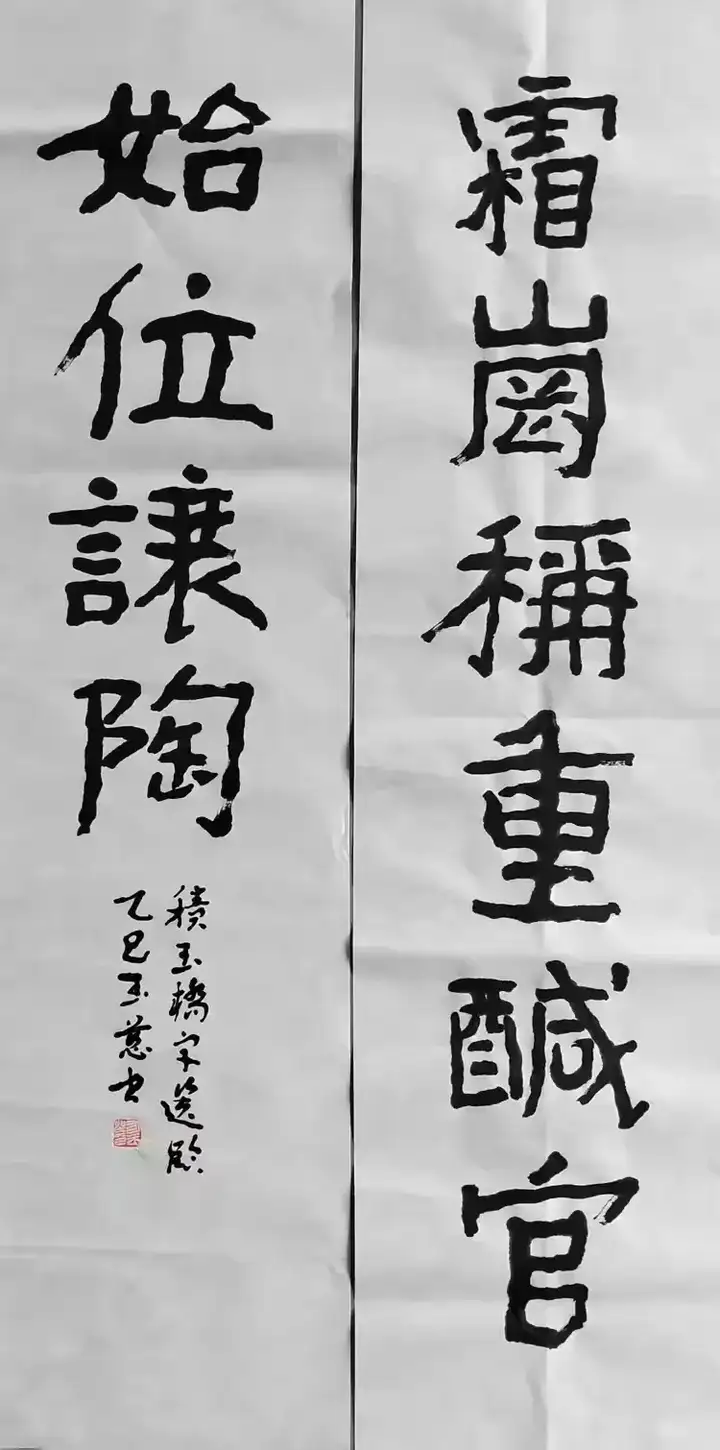 霜崗稱重醎官
始位讓陶
積玉橋字選臨
乙巳玉慈書